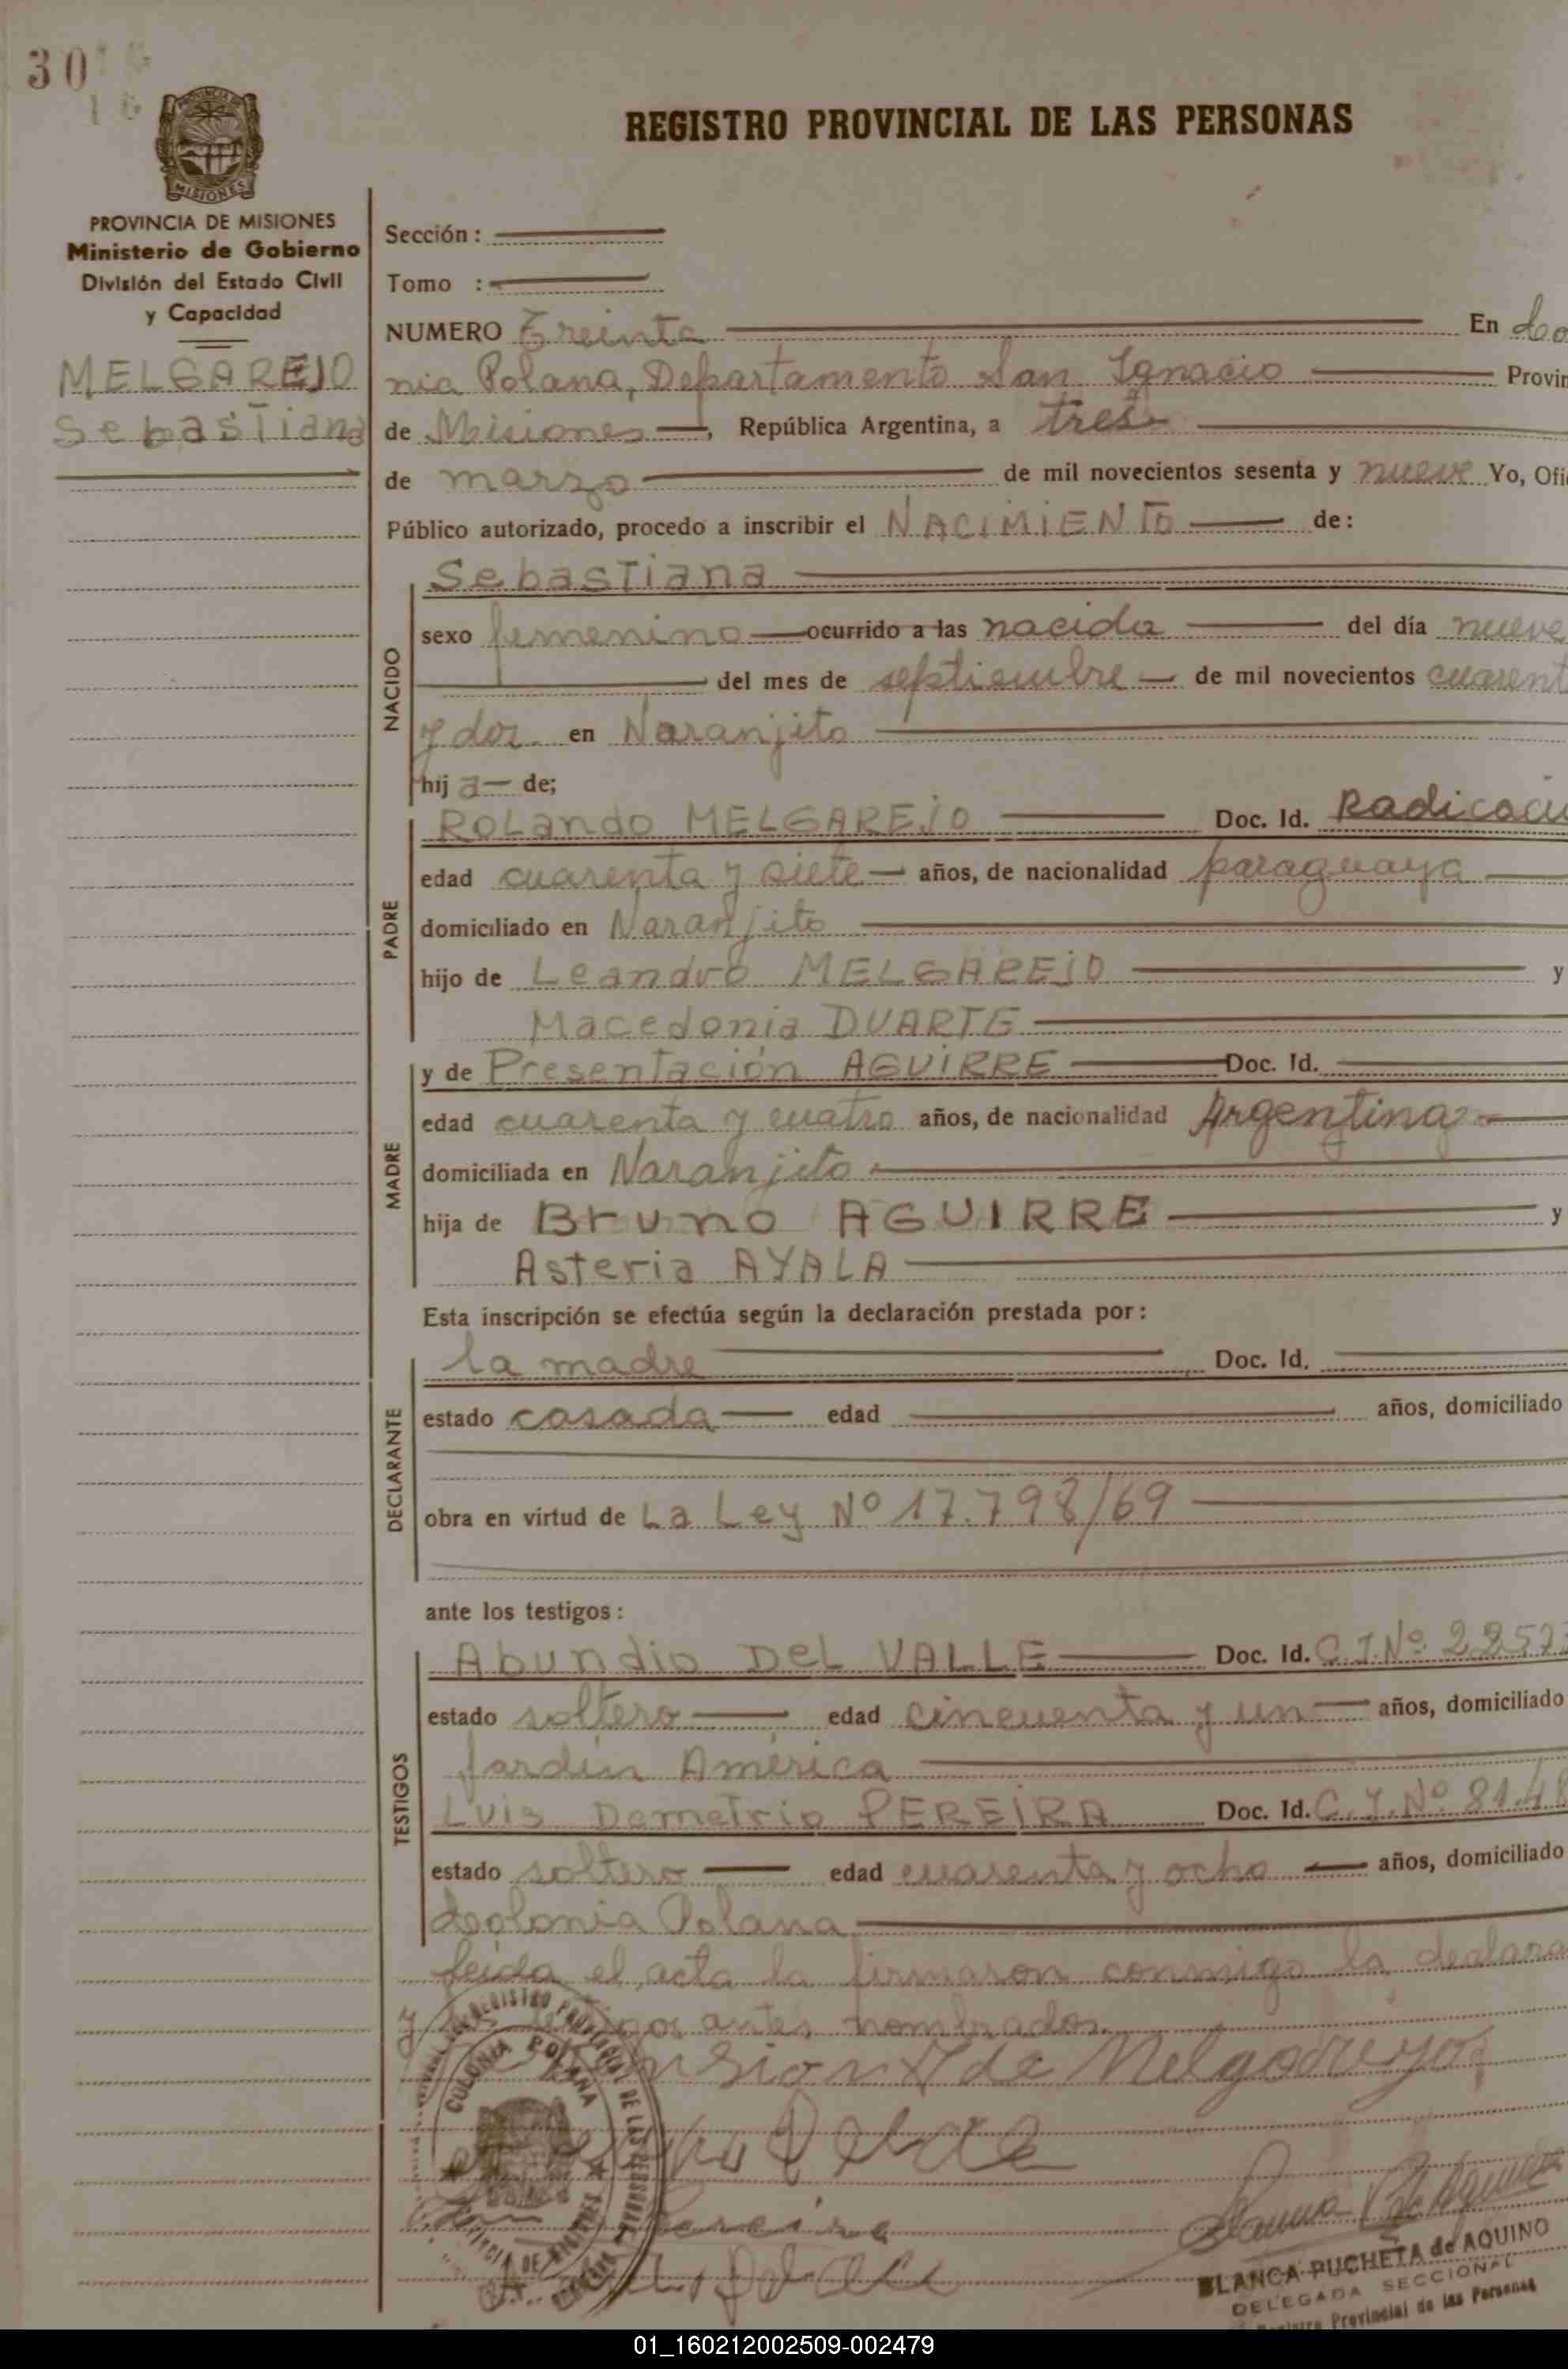 30
PROVINCIA DE MISIONES
Ministerio de Gobierno
División del Estado Civil
y Capacidad
MELGAREJO
Sebastiana
REGISTRO PROVINCIAL DE LAS PERSONAS
Sección:
Tomo :
NUMERO Treinta En Co
nia Polana, Departamento San Ignacio Provin
de Misiones, República Argentina, a tres
de marzo de mil novecientos sesenta y nueve Yo, Ofi
Público autorizado, procedo a inscribir el NACIMIENTO de:
NACIDO
Sebastiana
sexo femenino ocurrido a las nacida del día nueve
del mes de septiembre de mil novecientos cuarent
y dos en Naranjito
hij a de;
PADRE
Rolando MELGAREJO Doc. Id. Radicaci
edad cuarenta y siete años, de nacionalidad paraguaya
domiciliado en Naranjito
hijo de Leandro MELGAREJO y
Macedonia DUARTE
MADRE
y de Presentación AGUIRRE Doc. Id.
edad cuarenta y cuatro años, de nacionalidad Argentina
domiciliada en Naranjito
hija de Bruno AGUIRRE y
Asteria AYALA
Esta inscripción se efectúa según la declaración prestada por:
DECLARANTE
la madre Doc. Id.
estado casada edad años, domiciliado
obra en virtud de La Ley Nº 17.798/69
ante los testigos:
TESTIGOS
Abundio DEL VALLE Doc. Id. C.I.Nº 22573
estado soltero edad cincuenta y un años, domiciliado
Jardín América
Luis Demetrio PEREIRA Doc. Id. C.I.Nº 814
estado soltero edad cuarenta y ocho años, domiciliado
Colonia Polana
Leída el acta la firmaron conmigo la declara
y los testigos antes nombrados.
de Melgarejo
Pereira
COLONIA POLANA
BLANCA PUCHETA de AQUINO
DELEGADA SECCIONAL
Registro Provincial de las Personas
01_160212002509-002479